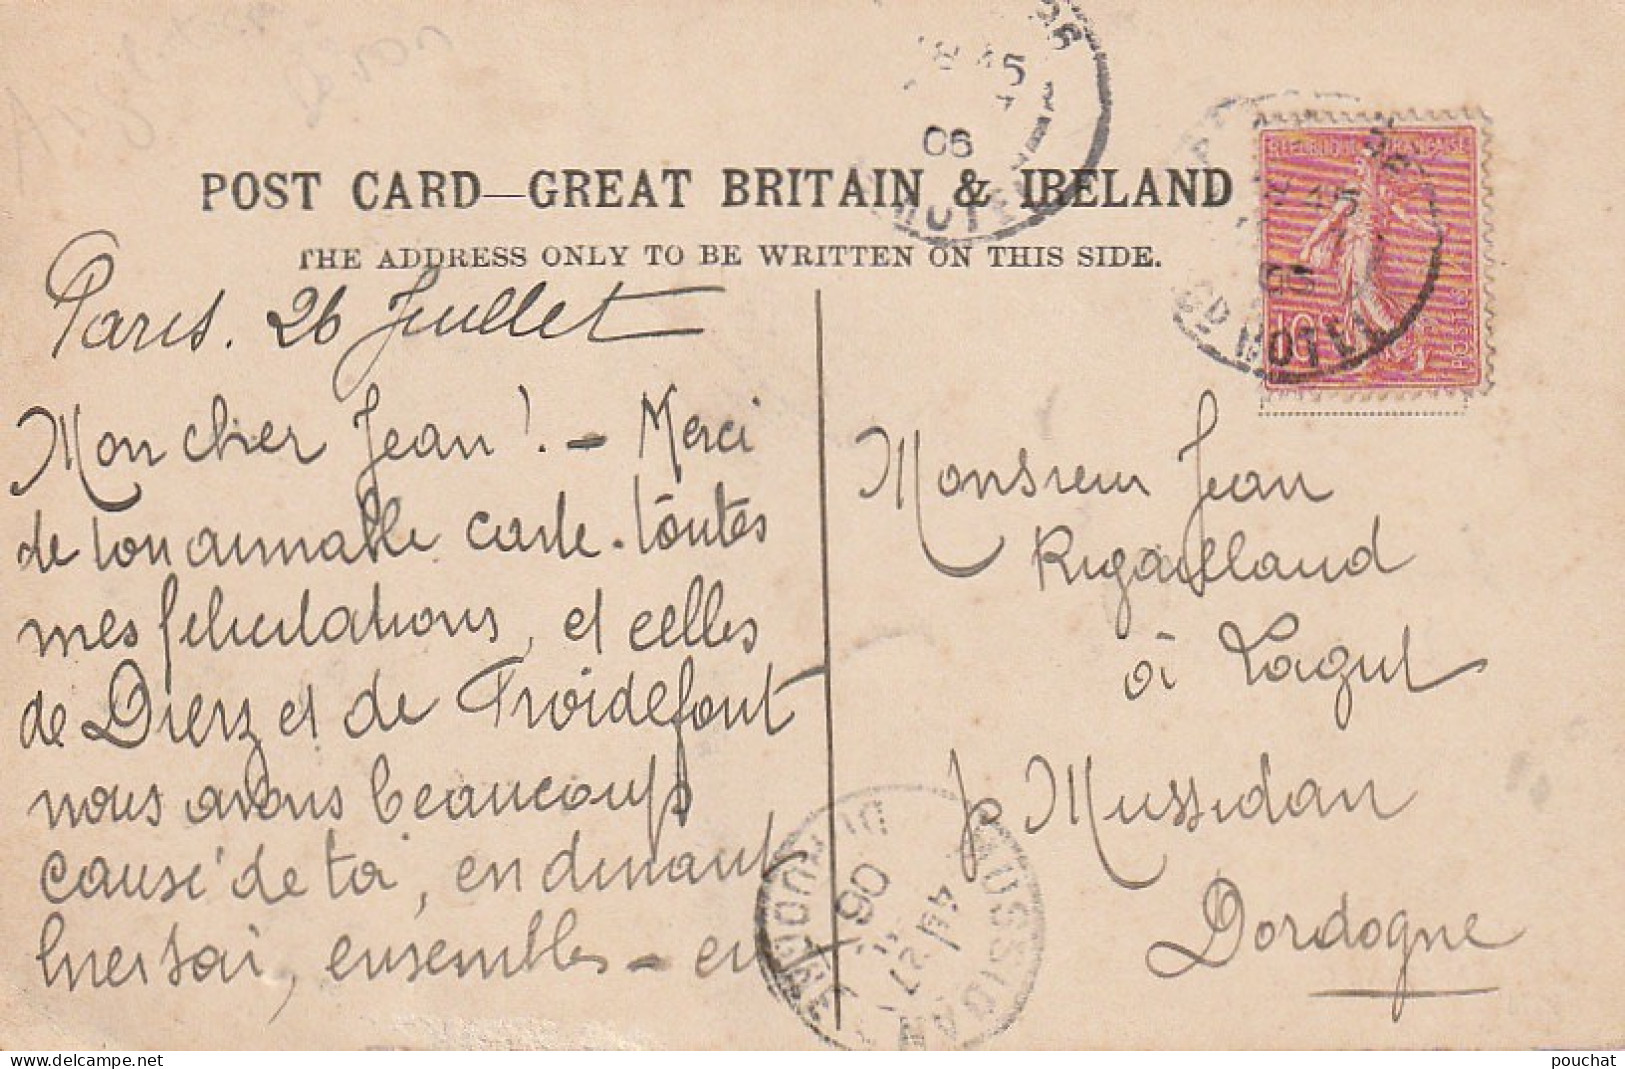 POST CARD—GREAT BRITAIN & IRELAND
THE ADDRESS ONLY TO BE WRITTEN ON THIS SIDE.
REPUBLIQUE FRANÇAISE
10
POSTES
06
Gd HOTEL
Paris. 26 Juillet
Mon cher Jean! - Merci
de ton aimable carte. Toutes
mes felicitations, et celles
de Dierz et de Froidefont
nous avons beaucoup
causé de toi, en dinant
hier soir, ensembles - en
Monsieur Jean
Rigailland
à Lagut
pr Mussidan
Dordogne
MUSSIDAN
DORDOGNE
27
06
pouchat